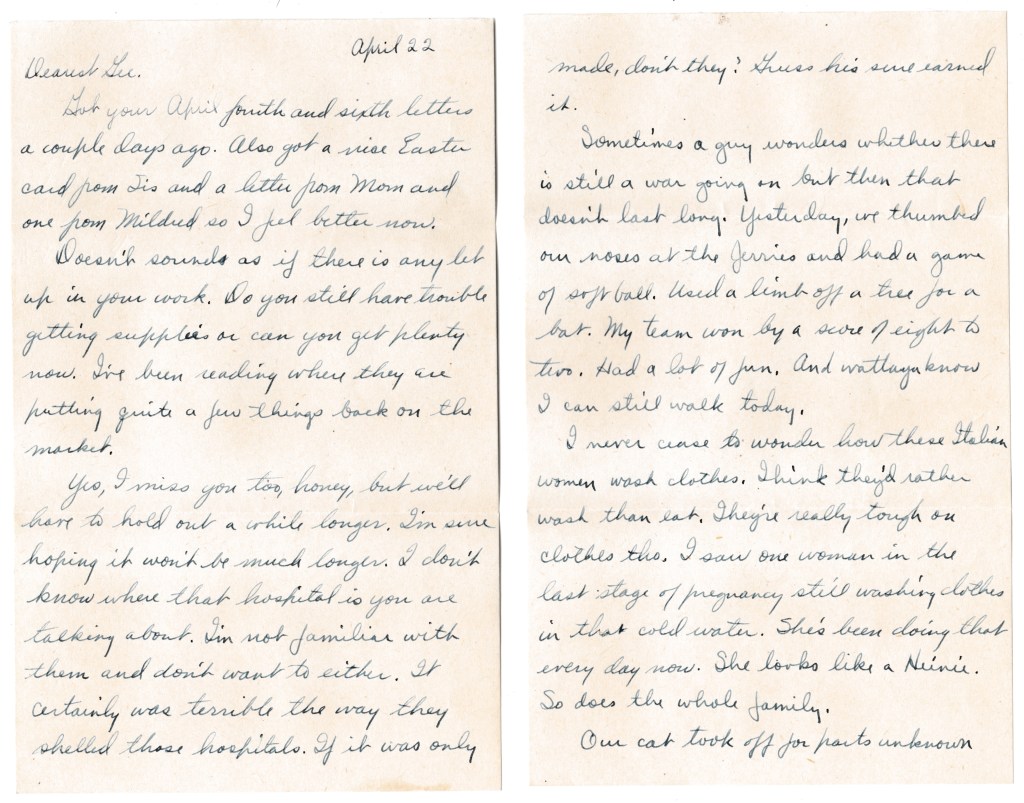 April 22
Dearest Gee.
Got your April fourth and sixth letters
a couple days ago. Also got a nice Easter
card from Sis and a letter from Mom and
one from Mildred so I feel better now.
Doesn't sounds as if there is any let
up in your work. Do you still have trouble
getting supplies or can you get plenty
now. I've been reading where they are
putting quite a few things back on the
market.
Yes, I miss you too, honey, but we'll
have to hold out a while longer. I'm sure
hoping it won't be much longer. I don't
know where that hospital is you are
talking about. I'm not familiar with
them and don't want to either. It
certainly was terrible the way they
shelled those hospitals. If it was only
made, don't they? Guess his sure earned
it.
Sometimes a guy wonders whether there
is still a war going on but then that
doesn't last long. Yesterday, we thumbed
our noses at the Jerries and had a game
of soft ball. Used a limb off a tree for a
bat. My team won by a score of eight to
two. Had a lot of fun. And wattayuknow
I can still walk today.
I never cease to wonder how these Italian
women wash clothes. I think they'd rather
wash than eat. They're really tough on
clothes tho. I saw one woman in the
last stage of pregnancy still washing clothes
in that cold water. She's been doing that
every day now. She looks like a Heinie.
So does the whole family.
Our cat took off for parts unknown